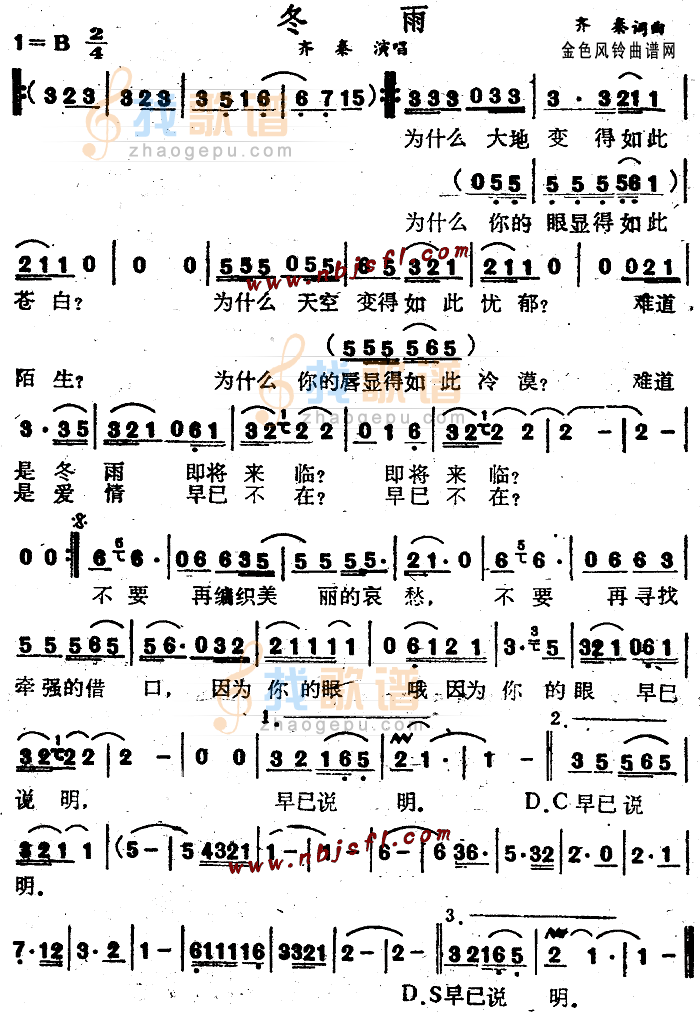 冬 雨
1=B 2/4
齐 秦 演唱
齐 秦词曲
金色风铃曲谱网
( 3 2 3 | 3 2 3 | 3 5 1 6 | 6 7 1 5 ) 3 3 3 0 3 3 | 3 · 3 2 1 1
为什么 大地 变 得如此
( 0 5 5 | 5 5 5 5 6 1 )
为什么 你的 眼显得如此
2 1 1 0 | 0 0 | 5 5 5 0 5 5 | 6 5 3 2 1 | 2 1 1 0 | 0 0 2 1
苍白? 为什么 天空 变得如此忧郁? 难道,
( 5 5 5 5 6 5 )
陌生? 为什么 你的唇显得如此冷漠? 难道
3 · 3 5 | 3 2 1 0 6 1 | 3 2 1 2 2 | 0 1 6 | 3 2 1 2 2 | 2 – | 2 –
是冬雨 即将来临? 即将来临?
是爱情 早已不在? 早已不在?
0 0 6 5 6 · | 0 6 6 3 5 | 5 5 5 5 · | 2 1 · 0 | 6 5 6 · | 0 6 6 3
不要 再编织美 丽的哀愁, 不要 再寻找
5 5 5 6 5 | 5 6 · 0 3 2 | 2 1 1 1 1 | 0 6 1 2 1 | 3 · 3 5 | 3 2 1 0 6 1
牵强的借口, 因为你的眼 哦因为你的眼 早已
1.
2.
3 2 1 2 2 | 2 – | 0 0 | 3 2 1 6 5 | 2 1 · | 1 – 3 5 5 6 5
说明, 早已说 明. D.C早已说
3 2 1 1 | ( 5 – | 5 4 3 2 1 | 1 – | 1 – | 6 – | 6 3 6 · | 5 · 3 2 | 2 · 0 | 2 · 1
明.
3.
7 · 1 2 | 3 · 2 | 1 – | 6 1 1 1 1 6 | 3 3 2 1 | 2 – | 2 – 3 2 1 6 5 | 2 1 · | 1 –
D.S早已说 明.
找歌谱
zhaogepu.com
www.nbjsfl.com
找歌谱
zhaogepu.com
找歌谱
zhaogepu.com
www.nbjsfl.com